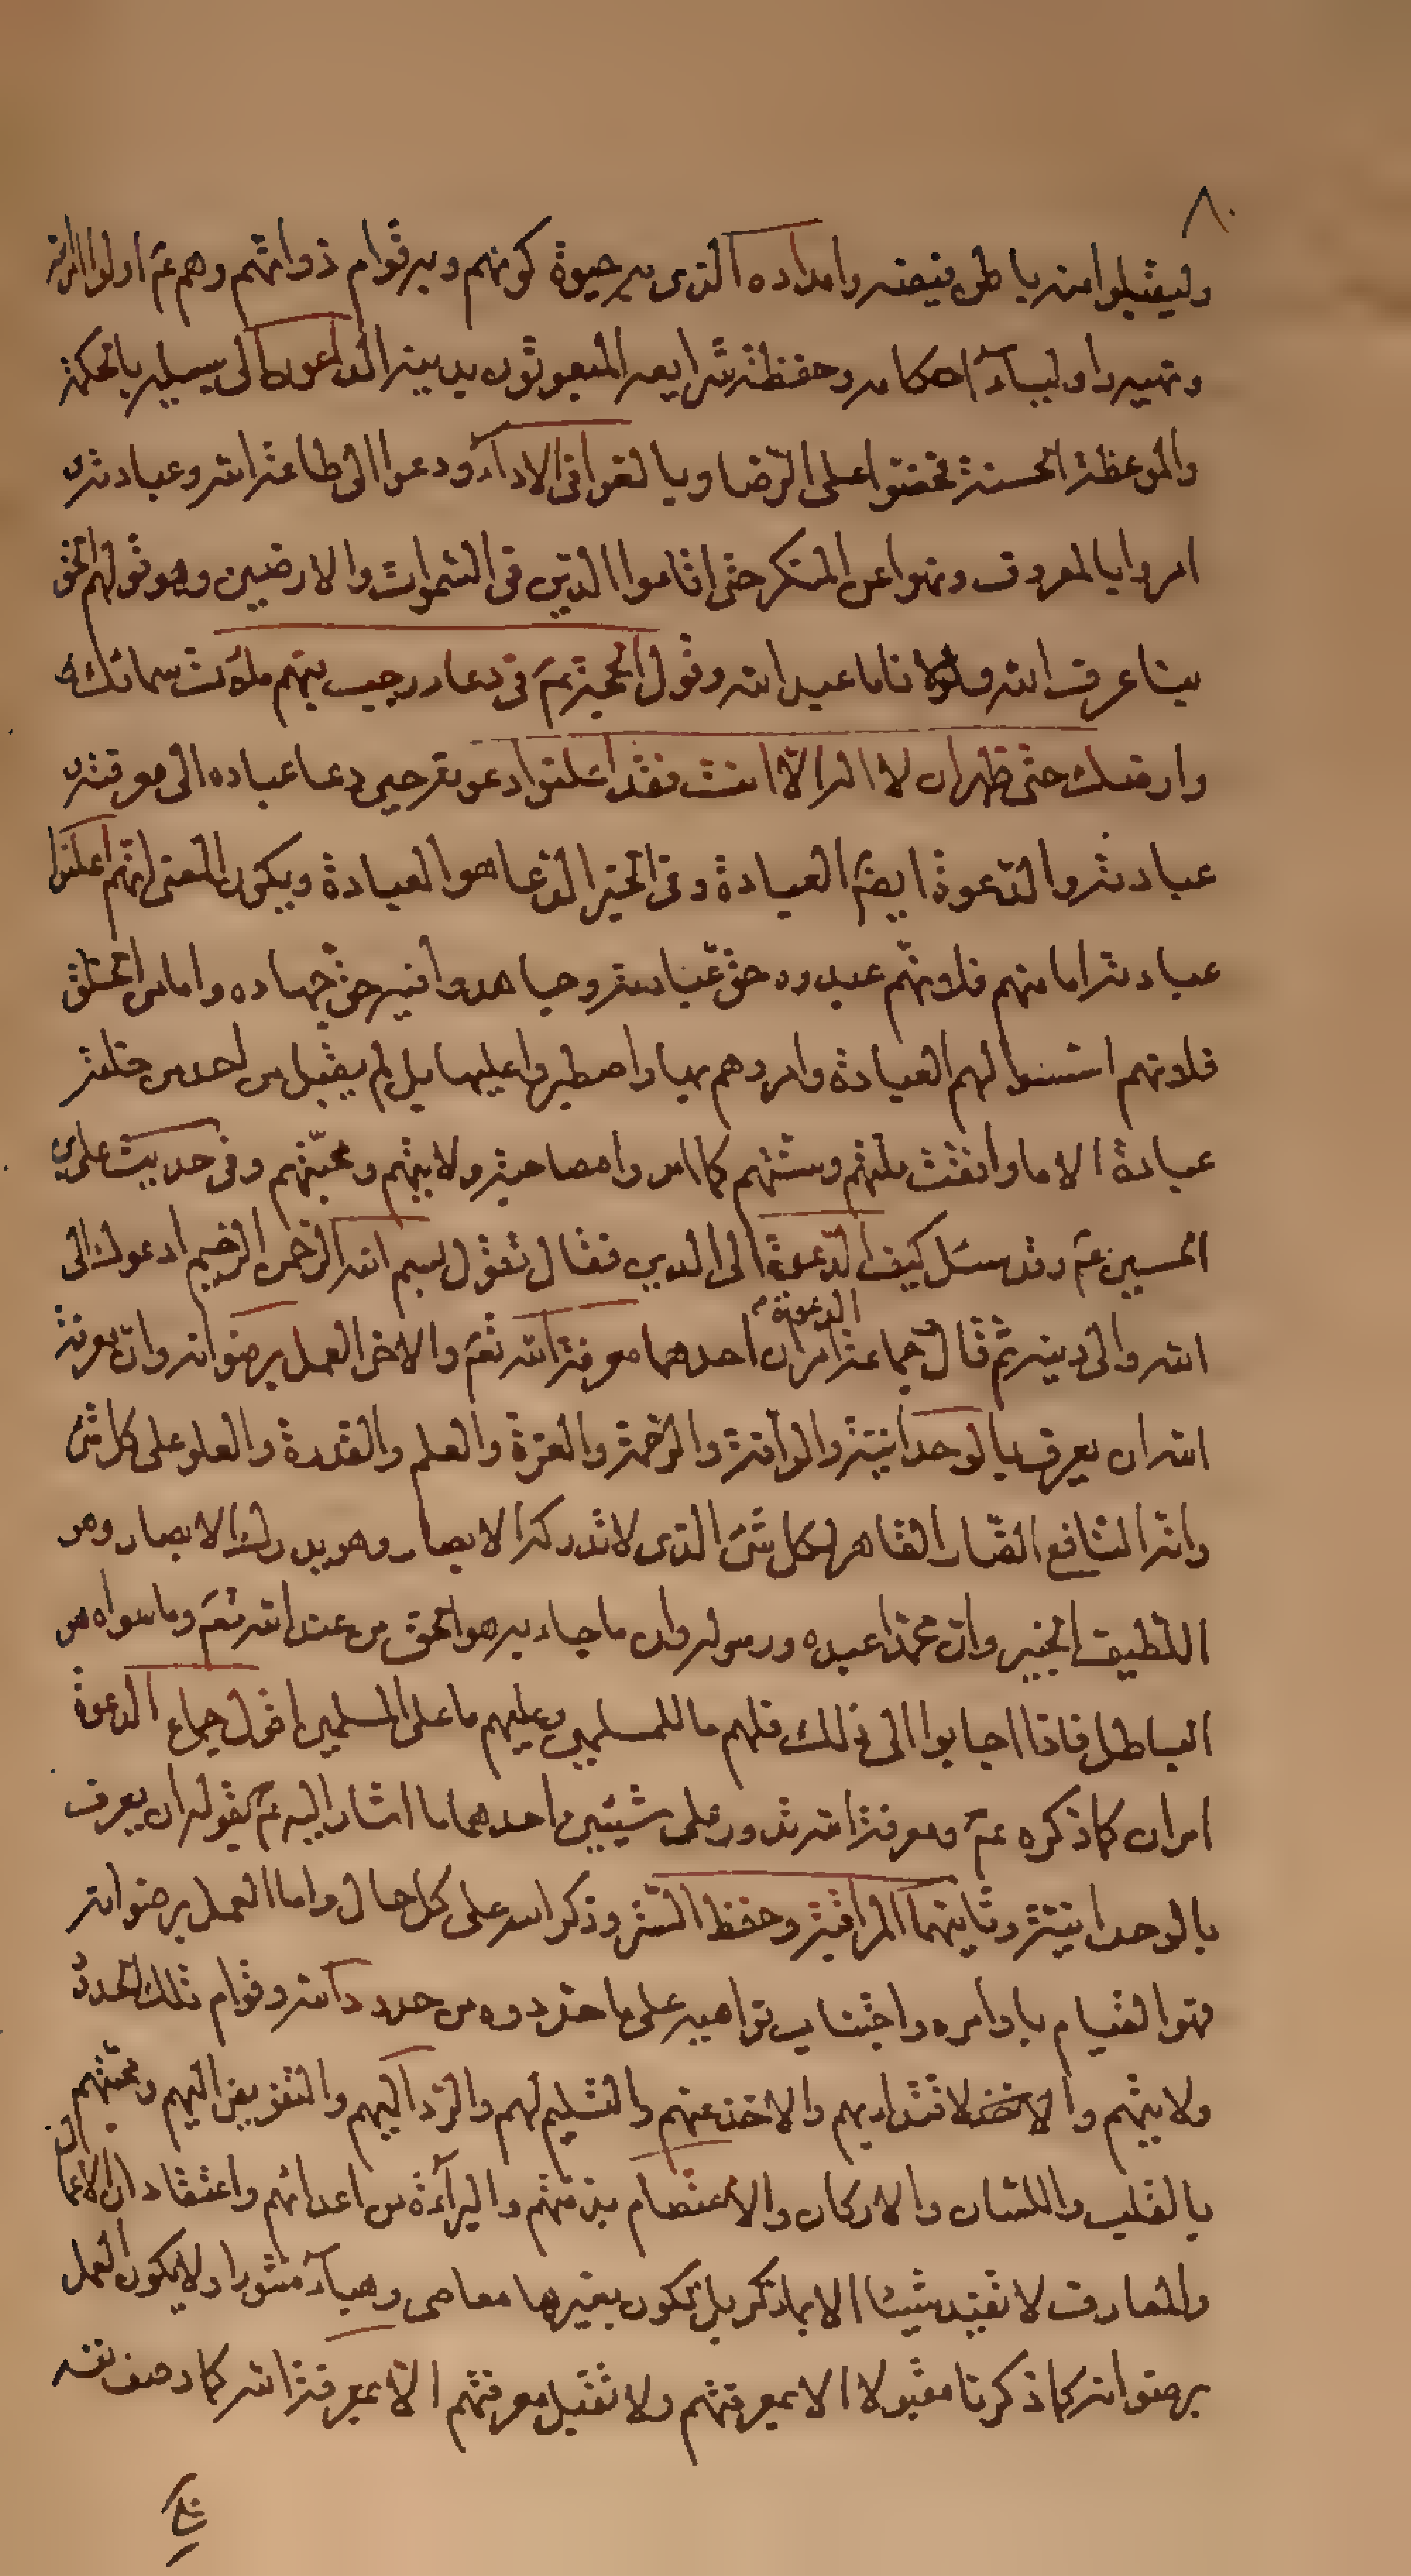 ٨٠
وليقبلوا منه باطن فيضه وامداده الذى به حيوة كونهم وبه قوام ذواتهم وهم ع اولوا امره
ونهيه واولياۤء احكامه وحفظة شرايعه المبعوثون بدينه الداعون الى سبيله بالحكمة
والموعظة الحسنة فحضّوا على الرّضا وبالغوا فى الاداۤء ودعوا الى طاعة الله وعبادته و
امروا بالمعروف ونهوا عن المنكر حتى اقاموا الدّين فى السّموات والارضين وهو قولهم الحق
بنا عرف الله ولولانا ما عبد الله وقول الحجّة ع فى دعاء رجب فبهم ملأت سمائك و
وارضك حتى ظهر ان لا اله الّا انت فقد اعلنوا دعوته حين دعا عباده الى معرفته و
عبادته والدّعوة ايضا العبادة وفى الخبر الدّعا هو العبادة ويكون المعنى انهم اعلنوا
عبادته اما منهم فلانّهم عبدوه حقّ عبادته وجاهدوا فيه حقّ جهاده واما من الخلق
فلانهم استسنوا لهم العبادة وامروهم بها واصطبروا عليها بل لم يقبل من احد من خلقه
عبادة الا ما وافقت ملتهم وسنتهم كما امروا مصاحبة ولايتهم ومحبّتهم وفى حديث على بن
الحسين ع وقد سئل كيف الدعوة الى الدين فقال تقول بسم الله الرّحمن الرّحيم ادعوك الى
الله والى دينه ثم قال جماعة الدعوة امران احدهما معرفة الله تع والاخر العمل برضوانه وان معرفة
الله ان يعرف بالوحدانيّة والرأفة والرّحمة والعزة والعلم والقدرة والعلو على كل شئ
وانه النّافع الضّار القاهر لكل شئ الذى لا تدركه الابصار وهو يدرك الابصار وهو
اللّطيف الخبير وانّ محمّدا عبده ورسوله وان ما جاء به هو الحق من عند الله تع وما سواه هو
الباطل فاذا اجابوا الى ذلك فلهم ما للمسلمين وعليهم ما على المسلمين اقول جماع الدعوة
امران كما ذكره ع ومعرفة الله تدور على شيئين احدهما ما اشار اليه ع بقوله ان يعرف
بالوحدانيّة وثانيهما المراقبة وحفظ السّر وذكر الله على كل حال واما العمل برضوانه
فهو القيام باوامره واجتناب نواهيه على ما حدّدوه من حدود الله وقوام تلك الحدود
ولايتهم والاقتداء بهم والاخذ عنهم والتسليم لهم والرّد اليهم والتفويض اليهم ومحبّتهم
بالقلب واللّسان والاركان والاعتصام بذمّتهم والبراۤءة من اعدائهم واعتقاد ان الاعمال
والمعارف لا تفيد شيئا الا بما ذكر بل تكون بغيرها معاصى وهباۤء منثورا ولا يكون العمل
برضوانه كما ذكرنا مقبولا الا بمعرفتهم ولا تقبل معرفتهم الّا بمعرفة الله كما وصف نفسه